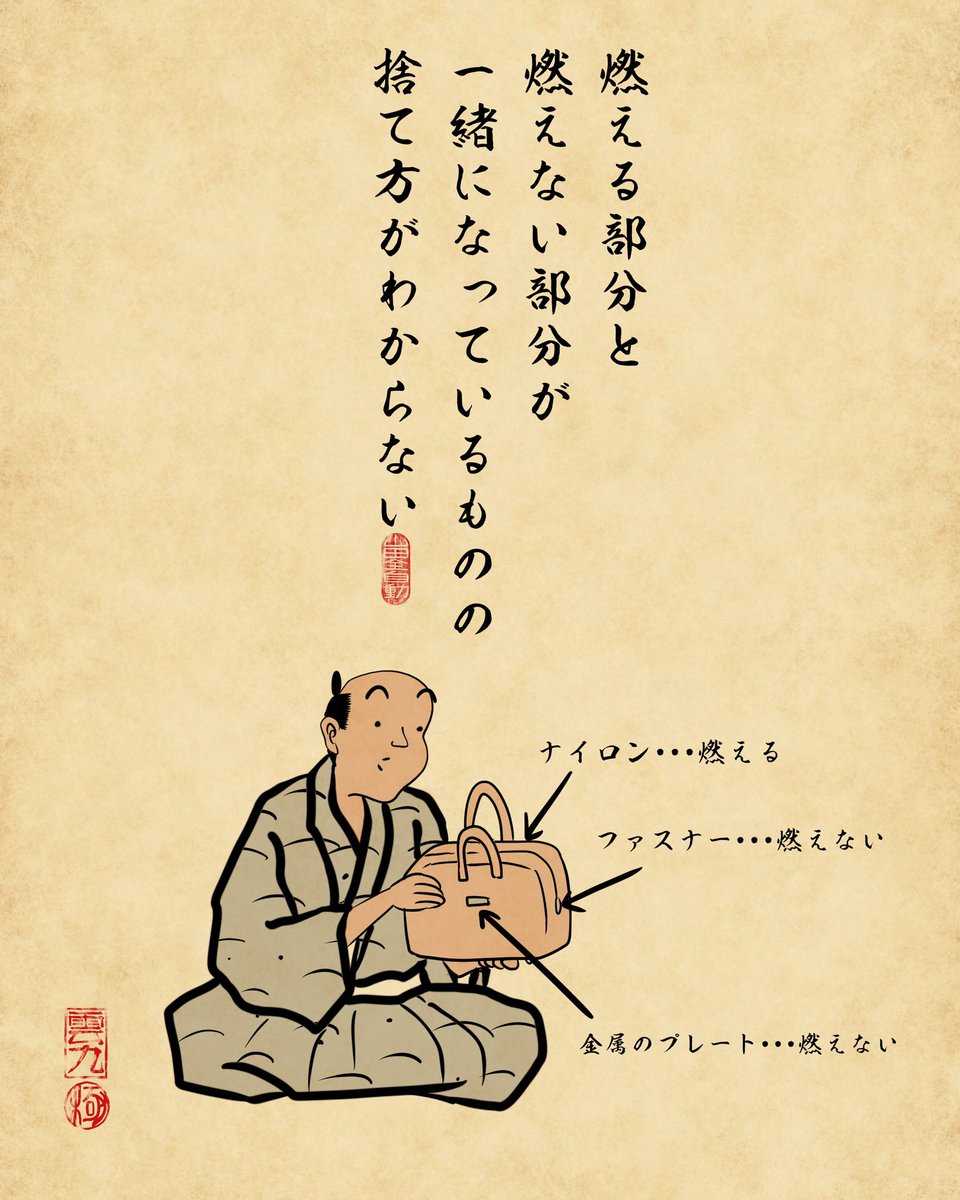 燃える部分と
燃えない部分が
一緒になっているものの
捨て方がわからない
ナイロン・・・燃える
ファスナー・・・燃えない
金属のプレート・・・燃えない